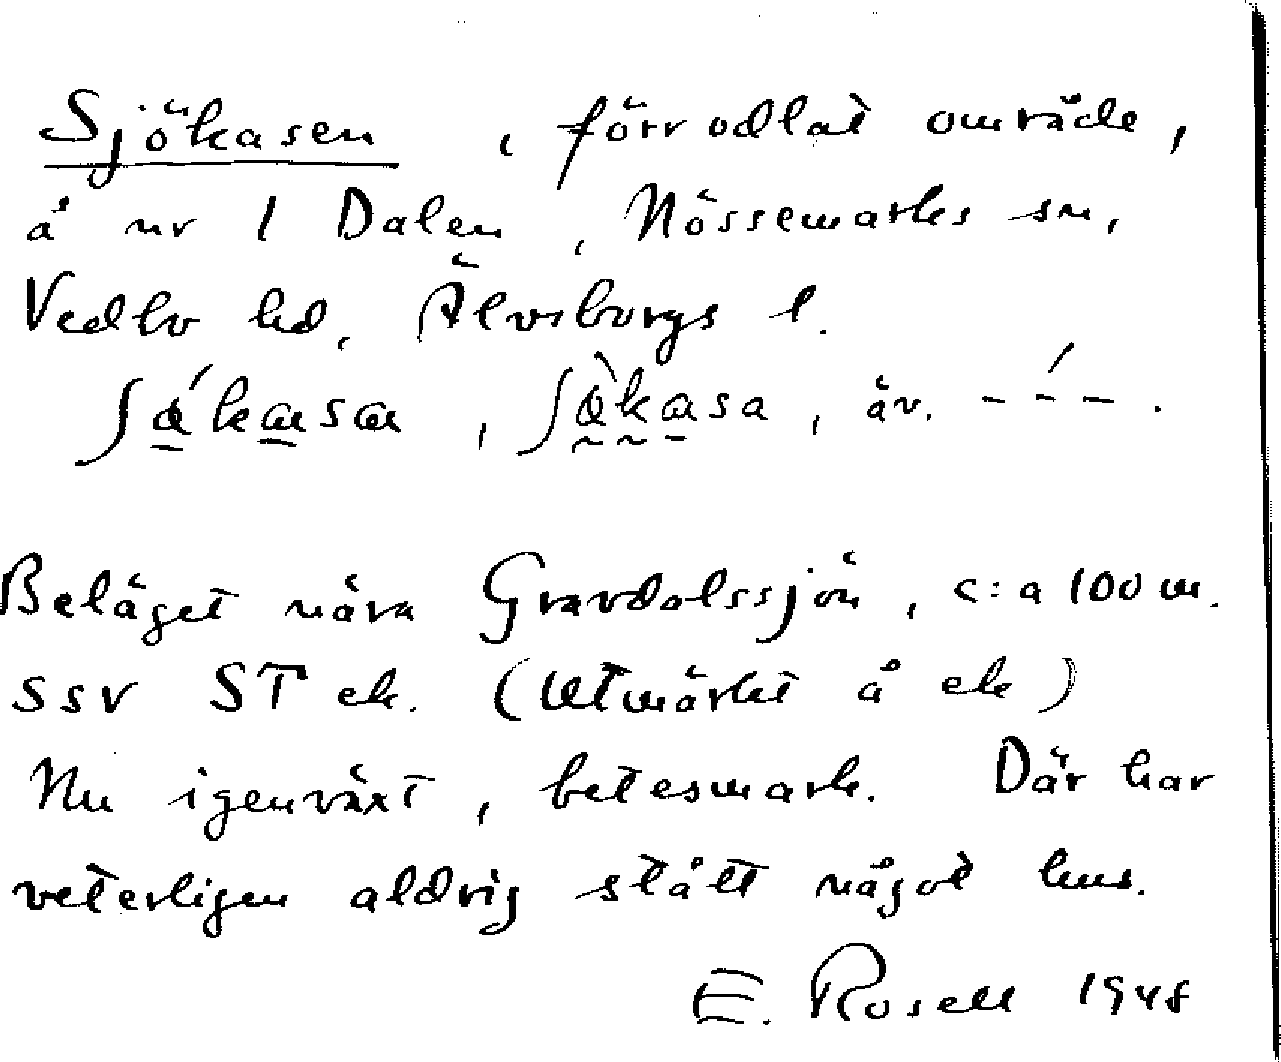 Sjökasen, förr odlat område,
å nr 1 Dalen, Nössemarks sn,
Vedbo hd, Älvsborgs l.
, äv. – – – .
Beläget nära Gravdalssjön, c:a 100 m.
SSV ST ek. (Utmärkt å ek)
Nu igenväxt, betesmark. Där har
veterligen aldrig stått något hus.
E. Rosell 1948